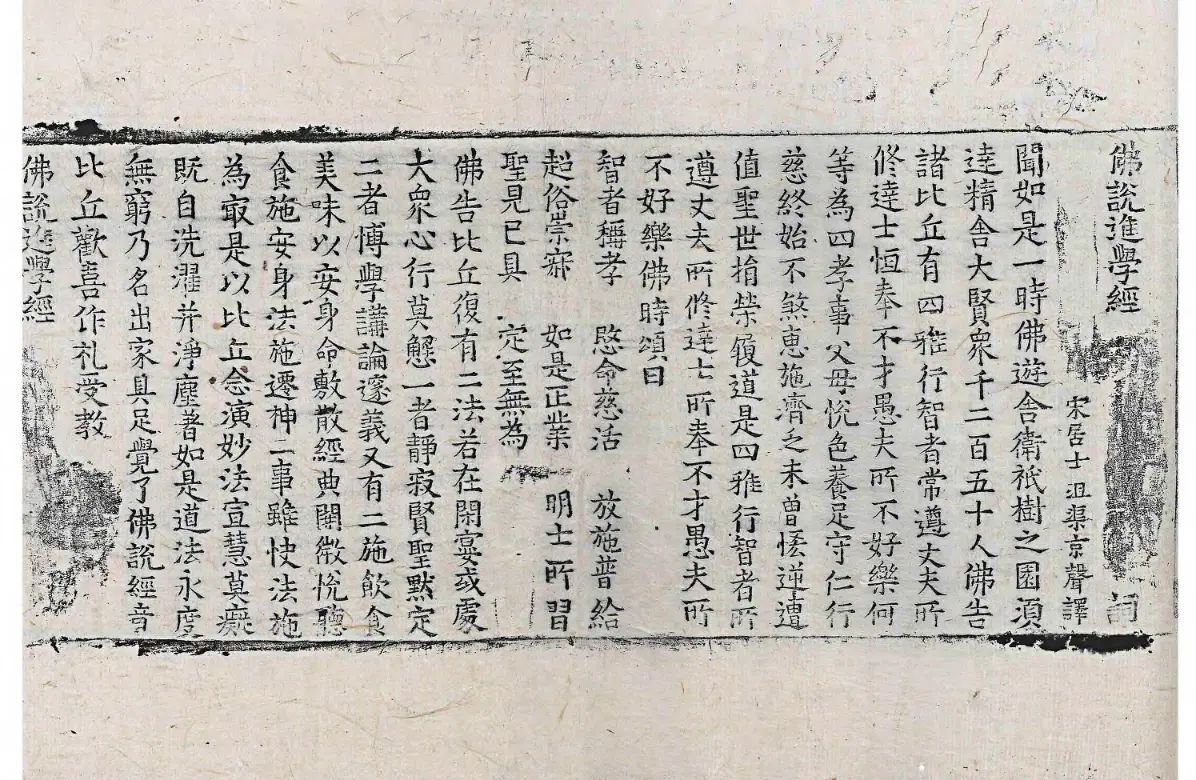 佛說進學經 詞
宋居士沮渠京聲譯
聞如是一時佛遊舍衛祇樹之園須
達精舍大賢衆千二百五十人佛告
諸比丘有四雅行智者常遵丈夫所
修達士恒奉不才愚夫所不好樂何
等為四孝事父母恱色養足守仁行
慈終始不煞恵施濟之未曽悋逆遭
值聖世捐榮履道是四雅行智者所
遵丈夫所修達士所奉不才愚夫所
不好樂佛時頌曰
智者稱孝 愍命慈活 放施普給
超俗崇寂 如是正業 明士所習
聖見已具 定至無為
佛告比丘復有二法若在閑宴或處
大衆心行莫懈一者靜寂賢聖默定
二者博學講論邃義又有二施飲食
美味以安身命敷散經典開微恱聽
食施安身法施遷神二事雖快法施
為冣是以比丘念演妙法宣慧莫癡
既自洗濯并淨塵著如是道法永度
無窮乃名出家具足覺了佛說經竟
比丘歡喜作礼受教
佛說進學經